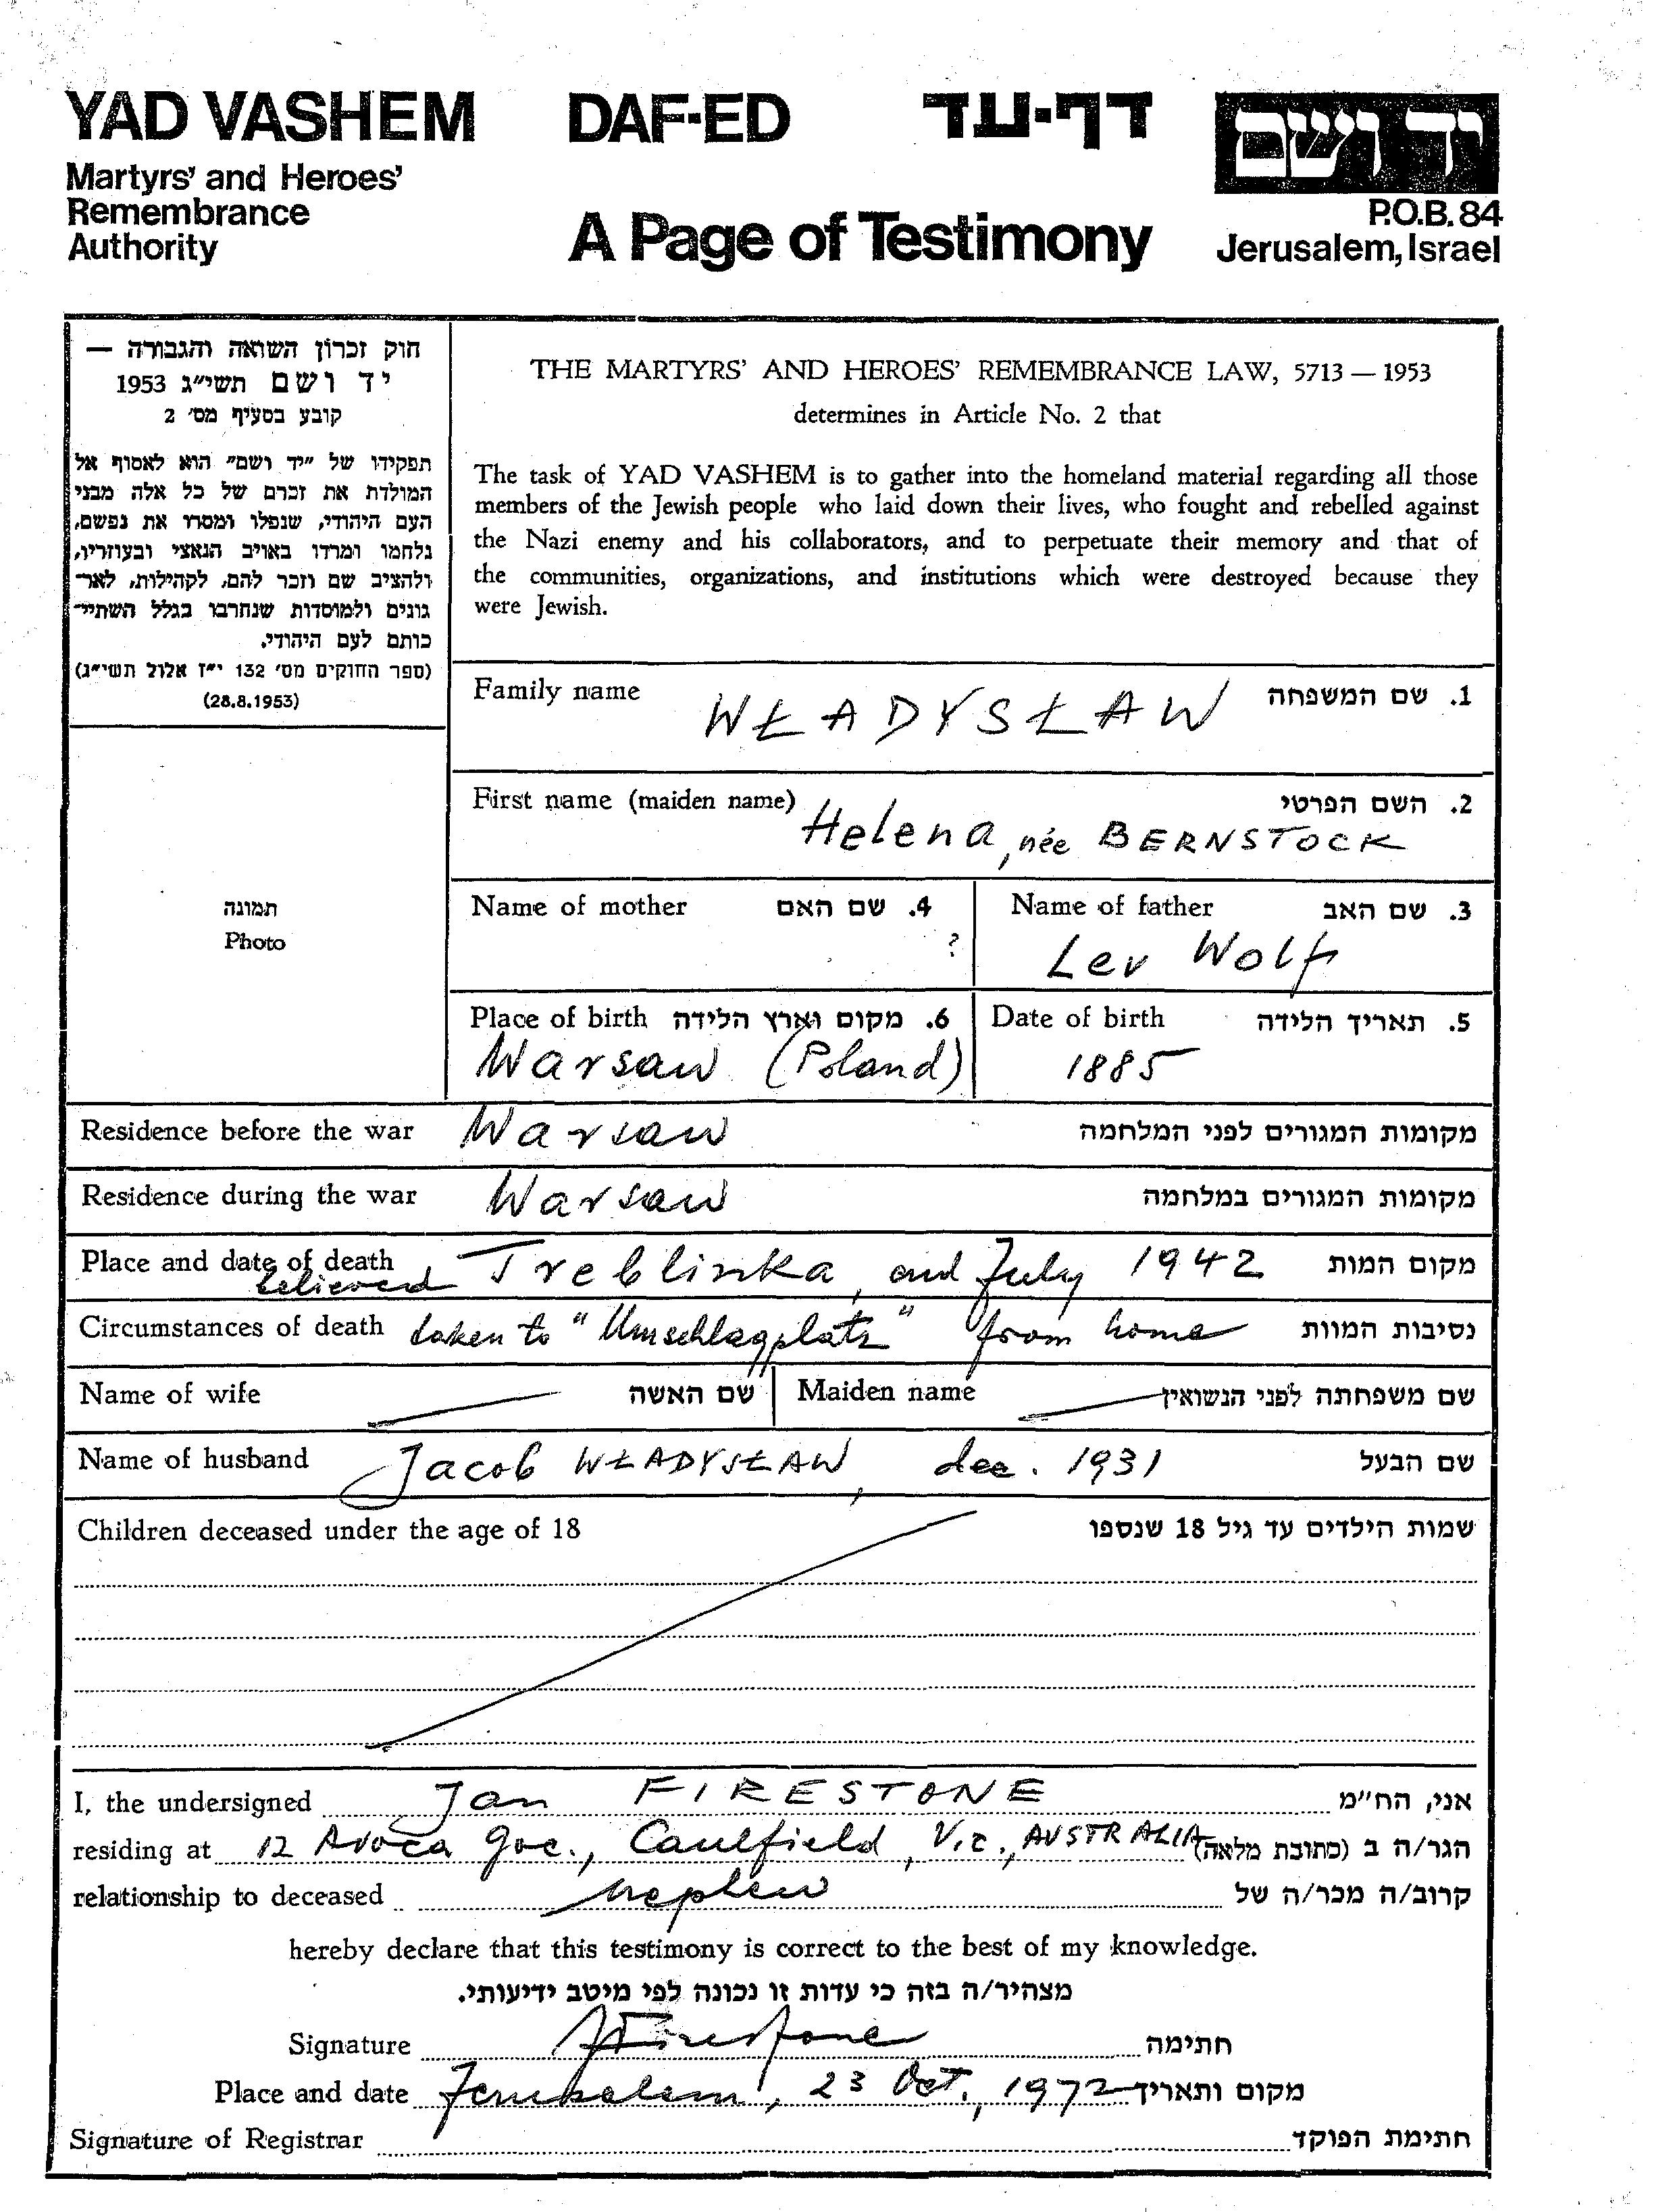 YAD VASHEM DAF-ED דף-עד יד ושם
Martyrs' and Heroes'
Remembrance
Authority
A Page of Testimony
P.O.B. 84
Jerusalem, Israel
חוק זכרון השואה והגבורה —
יד ושם תשי"ג 1953
קובע בסעיף מס' 2
תפקידו של "יד ושם" הוא לאסוף אל
המולדת את זכרם של כל אלה מבני
העם היהודי, שנפלו ומסרו את נפשם,
נלחמו ומרדו באויב הנאצי ובעוזריו,
ולהציב שם וזכר להם, לקהילות, לאר־
גונים ולמוסדות שנחרבו בגלל השתיי־
כותם לעם היהודי.
(ספר החוקים מס' 132 י"ז אלול תשי"ג)
(28.8.1953)
THE MARTYRS' AND HEROES' REMEMBRANCE LAW, 5713 — 1953
determines in Article No. 2 that
The task of YAD VASHEM is to gather into the homeland material regarding all those
members of the Jewish people who laid down their lives, who fought and rebelled against
the Nazi enemy and his collaborators, and to perpetuate their memory and that of
the communities, organizations, and institutions which were destroyed because they
were Jewish.
תמונה
Photo
Family name WŁADYSŁAW 1. שם המשפחה
First name (maiden name) Helena, née BERNSTOCK 2. השם הפרטי
Name of mother 4. שם האם Name of father 3. שם האב
? Lev Wolf
Place of birth 6. מקום וארץ הלידה Date of birth 5. תאריך הלידה
Warsaw (Poland) 1885
Residence before the war Warsaw מקומות המגורים לפני המלחמה
Residence during the war Warsaw מקומות המגורים במלחמה
Place and date of death believed Treblinka, end July 1942 מקום המות
Circumstances of death taken to "Umschlagplatz" from home נסיבות המוות
Name of wife שם האשה Maiden name שם משפחתה לפני הנשואין
Name of husband Jacob WŁADYSŁAW, dec. 1931 שם הבעל
Children deceased under the age of 18 שמות הילדים עד גיל 18 שנספו
I, the undersigned Jan FIRESTONE אני, הח"מ
residing at 12 Avoca Gve., Caulfield, Vic., AUSTRALIA הגר/ה ב (כתובת מלאה)
relationship to deceased nephew קרוב/ה מכר/ה של
hereby declare that this testimony is correct to the best of my knowledge.
מצהיר/ה בזה כי עדות זו נכונה לפי מיטב ידיעותי.
Signature JFirestone חתימה
Place and date Jerusalem, 23 Oct., 1972 מקום ותאריך
Signature of Registrar חתימת הפוקד